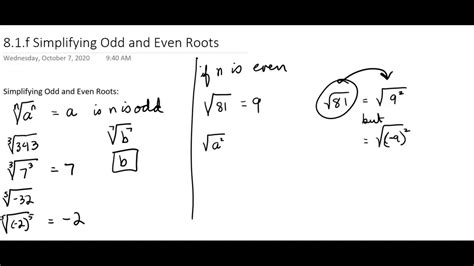 8.1.f Simplifying Odd and Even Roots
Wednesday, October 7, 2020 9:40 AM
Simplifying Odd and Even Roots:
ⁿ√aⁿ = a is n is odd
³√343
³√7³ = 7
⁵√-32
⁵√(-2)⁵ = -2
⁷√b⁷
b
if n is even
√81 = 9
√a²
√81 = √9²
but
= √(-9)²